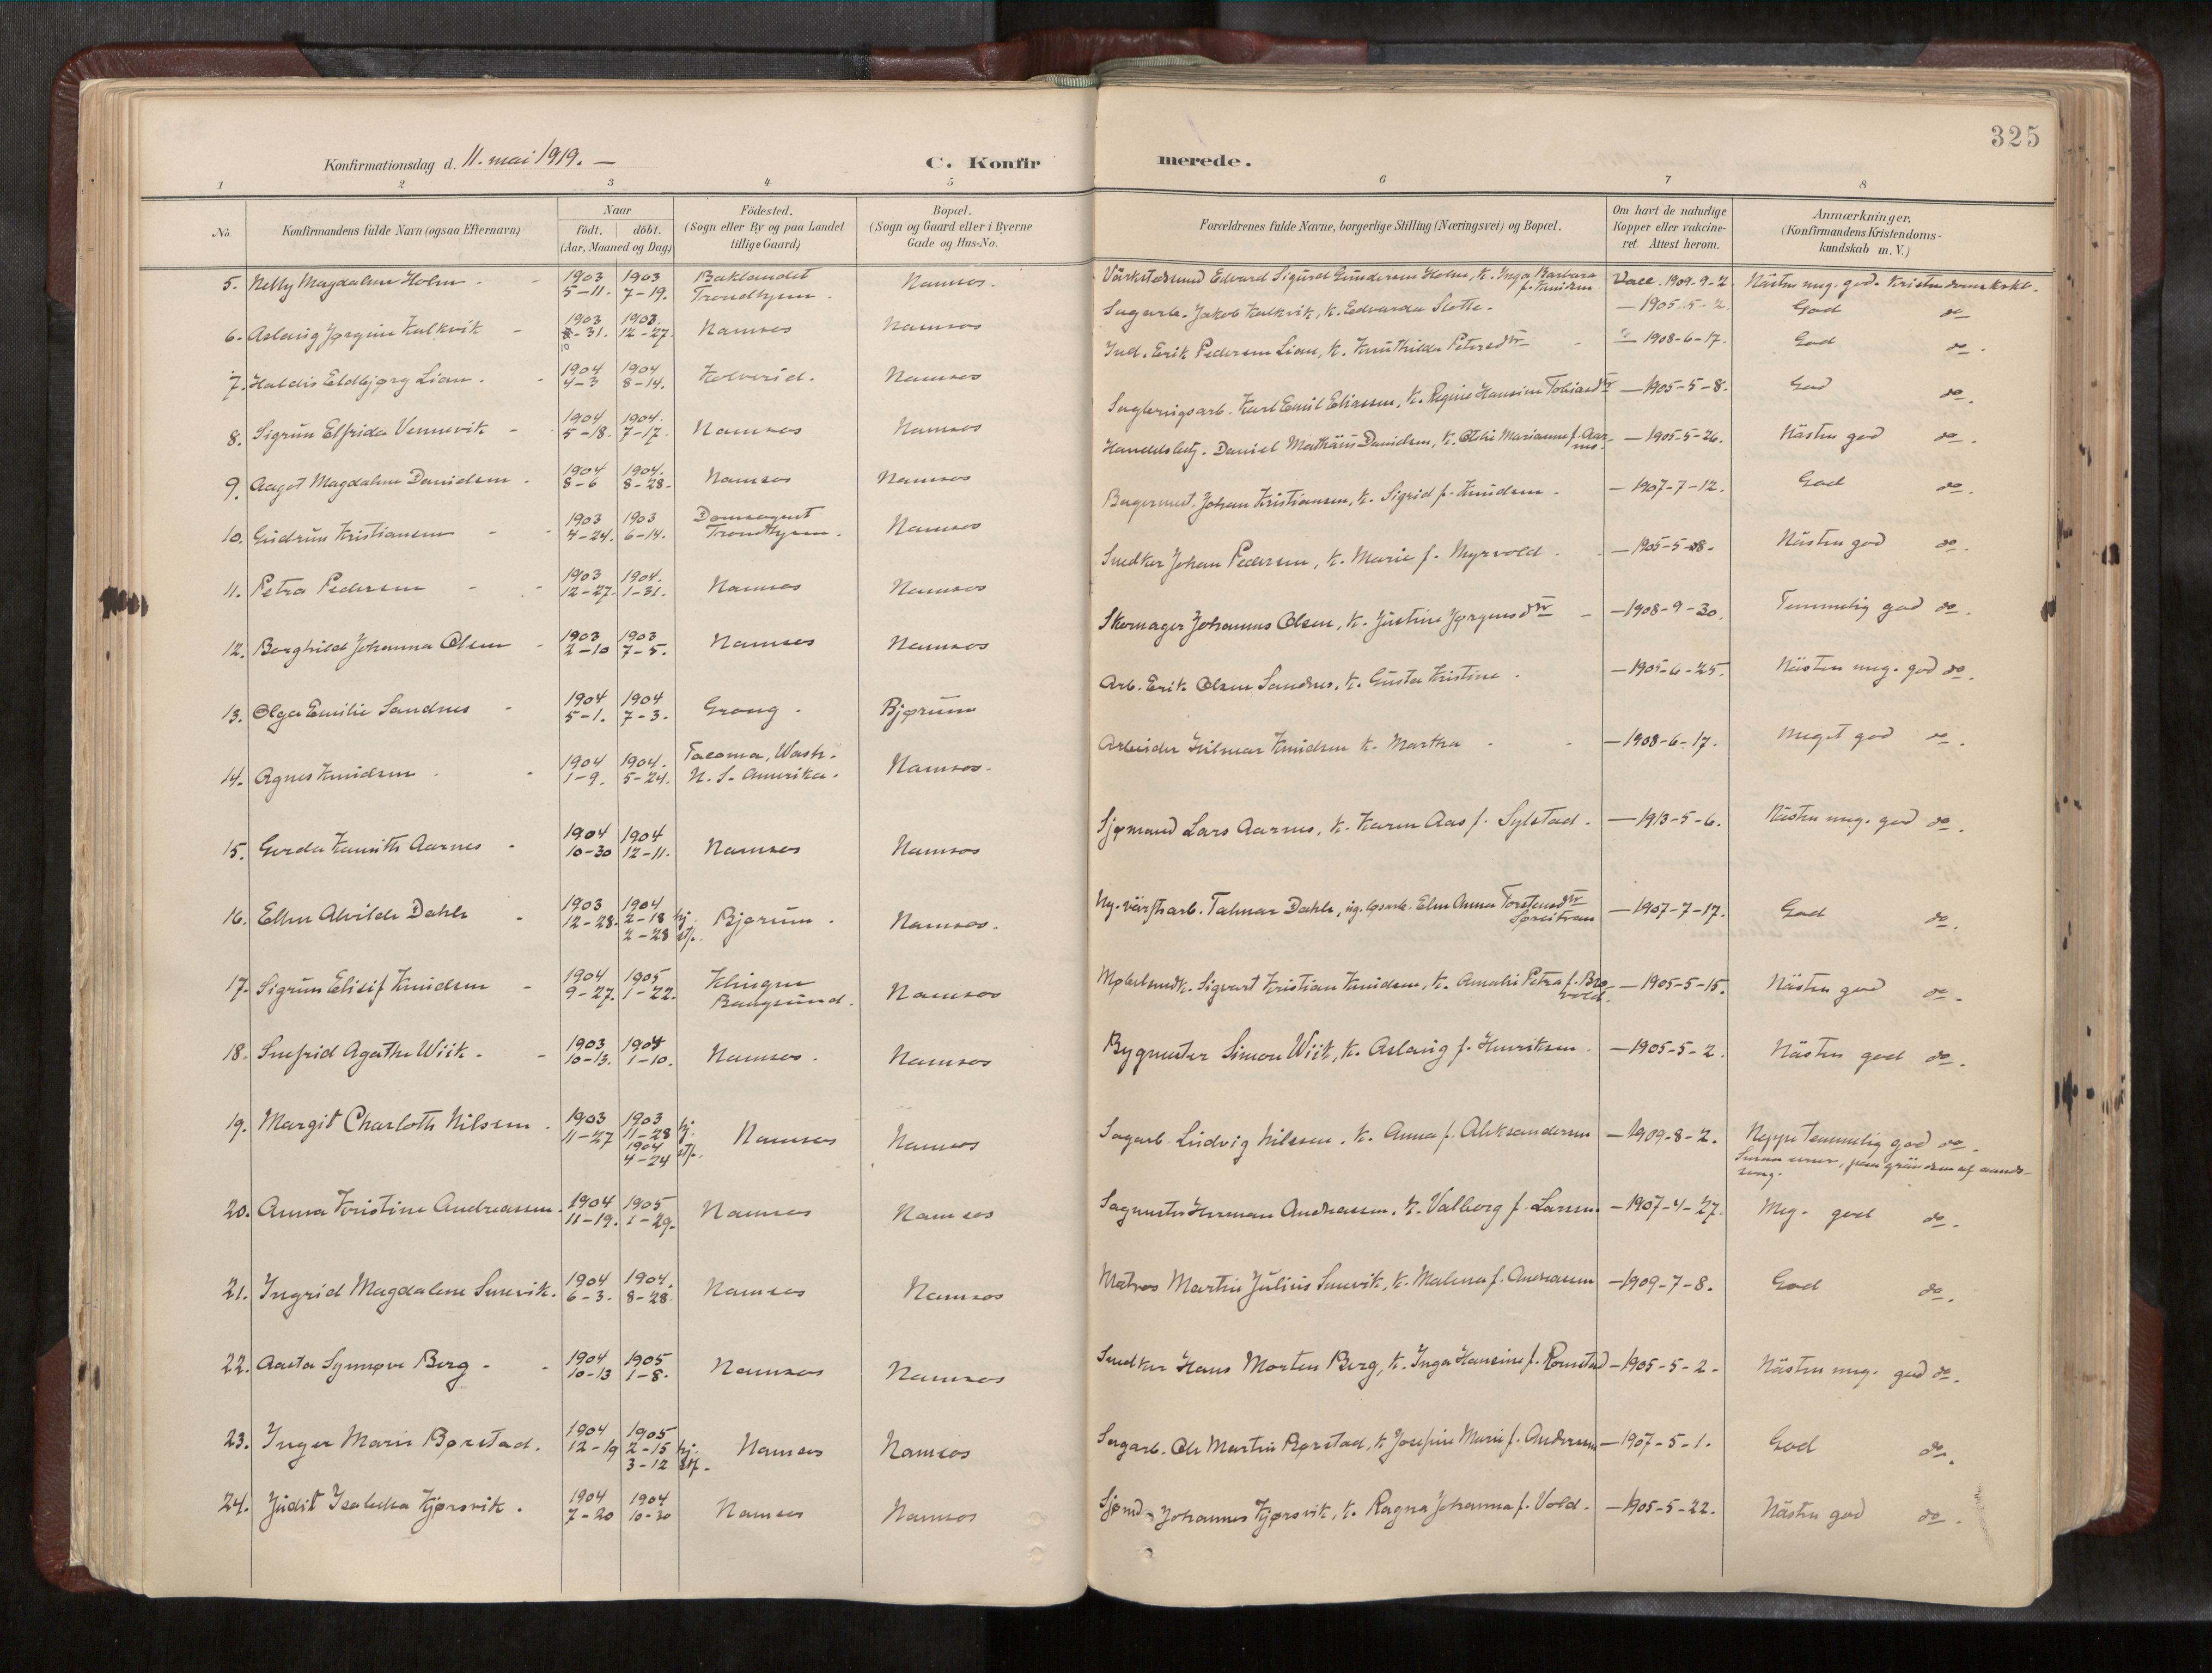 325
Konfirmationsdag d. 11. mai 1919. —
C. Konfirmerede.
1 2 3 4 5 6 7 8
No. Konfirmandens fulde Navn (ogsaa Efternavn) Naar født. døbt. (Aar, Maaned og Dag) Fødested. (Sogn eller By og paa Landet tillige Gaard) Bopæl. (Sogn og Gaard eller i Byerne Gade og Hus-No. Forældrenes fulde Navne, borgerlige Stilling (Næringsvei) og Bopæl. Om havt de naturlige Kopper eller vakcineret. Attest herom. Anmærkninger. (Konfirmandens Kristendomskundskab m. V.)
5. Nelly Magdalene Holm. 1903 5-11. 1903 7-19. Baklandet Trondhjem. Namsos. Edvard Sigurd Gundersen Holm, k. Inga Barbara f. Knudsen Vacc. 1909-9-2. Nästen meg. god. Kristendomskskb.
6. Aslaug Jørgine Kalkvik 1903 10-31. 1903. 12-27. Namsos Namsos Sagarb. Jakob Kalkvik, k. Edvarda Slotte. — 1905-5-2. God do
7. Haldis Eldbjørg Lian. 1904 4-3 1904 8-14. Kolvereid. Namsos Ind. Erik Pedersen Lian, k. Petersdtr — 1908-6-17. God do.
8. Sigrun Elfrida Vennevik 1904 5-18. 1904. 7-17. Namsos Namsos Karl Emil Eliassen, k. Regine Hansine Tobiasdtr — 1905-5-8. God do.
9. Aagot Magdalene Danielsen. 1904 8-6 1904. 8-28. Namsos Namsos Handelsbetj. Daniel Mathäus Danielsen, k. Otelie Marianne f. Aarnes. — 1905-5-26. Nästen god do.
10. Gudrun Kristiansen 1903 4-24. 1903 6-14. Domsognet Trondhjem. Namsos Bagermest. Johan Kristiansen, k. Sigrid f. Knudsen. — 1907-7-12. God do.
11. Petra Pedersen 1903 12-27. 1904. 1-31. Namsos Namsos Snedker Johan Pedersen, k. Marie f. Myrvold. — 1905-5-08. Nästen god do.
12. Borghild Johanna Olsen 1903 2-10 1903 7-5. Namsos Namsos Skomager Johannes Olsen, k. Justine Jørgensdtr — 1908-9-30. Temmelig god do.
13. Olga Emilie Sandnes 1904 5-1. 1904 7-3. Grong. Bjørum Arb. Erik Olsen Sandnes, k. Gusta Kristine. — 1905-6-25. Nästen meg. god do.
14. Agnes Knudsen. 1904 1-9. 1904. 5-24. Tacoma, Wash. N. S. Amerika. Namsos. Arbeider Hilmar Knudsen k. Martha — 1908-6-17. Meget god do.
15. Gerda Aarnes 1904 10-30 1904 12-11. Namsos Namsos Sjømand Lars Aarnes, k. Karen Aas f. Sylstad. — 1913-5-6. Nästen meg. god do.
16. Ellen Alvilde Dahle 1903 12-28. 1904 2-18 hj. 2-28 stf. Bjørum. Namsos. Dahle, Elen Anna Torstensdtr — 1907-7-17. God do.
17. Sigrun Elisif Knudsen 1904 9-27. 1905 1-22. Klingen Bangsund. Namsos Møbelsnedk. Sigvart Kristian Knudsen, k. Amalie Petra f. Brovold. — 1905-5-15. Nästen god do.
18. Snefrid Agathe Wiik. 1903 10-13. 1904 1-10. Namsos. Namsos Bygmester Simon Wiik, k. Aslaug f. Henriksen. — 1905-5-2. Nästen god do.
19. Margit Charlothe Nilssen. 1903 11-27 1903 11-28 hj. 1904 4-24 stf. Namsos Namsos Sagarb. Ludvig Nilssen. k. Anna f. Aleksandersen — 1909-8-2. Neppe temmelig god do. paa grund av
20. Anna Kristine Andreassen. 1904 11-19. 1905 1-29. Namsos Namsos Sagmester Herman Andreassen. k. Valborg f. Larsen — 1907-4-27. Meg. god do.
21. Ingrid Magdalene Smevik. 1904 6-3. 1904. 8-28 Namsos Namsos Matros Martin Julius Smevik, k. Malena f. Andreassen — 1909-7-8. God do.
22. Aasta Synnøve Berg 1904 10-13 1905 1-8. Namsos Namsos Snedker Hans Morten Berg, k. Inga Hansine f. — 1905-5-2. Nästen meg. god do.
23. Inger Marie Børstad. 1904 12-19 1905 2-15 hj. 3-12 stf. Namsos Namsos Sagarb. Ole Martin Børstad, k. Josefine Marie f. Andersen — 1907-5-1. God do.
24. Judit Isabella Kjørsvik. 1904 7-20 1904 10-30 Namsos Namsos Sjømd. Johannes Kjørsvik, k. Ragna Johanna f. Vold. — 1905-5-22. Nästen god do.